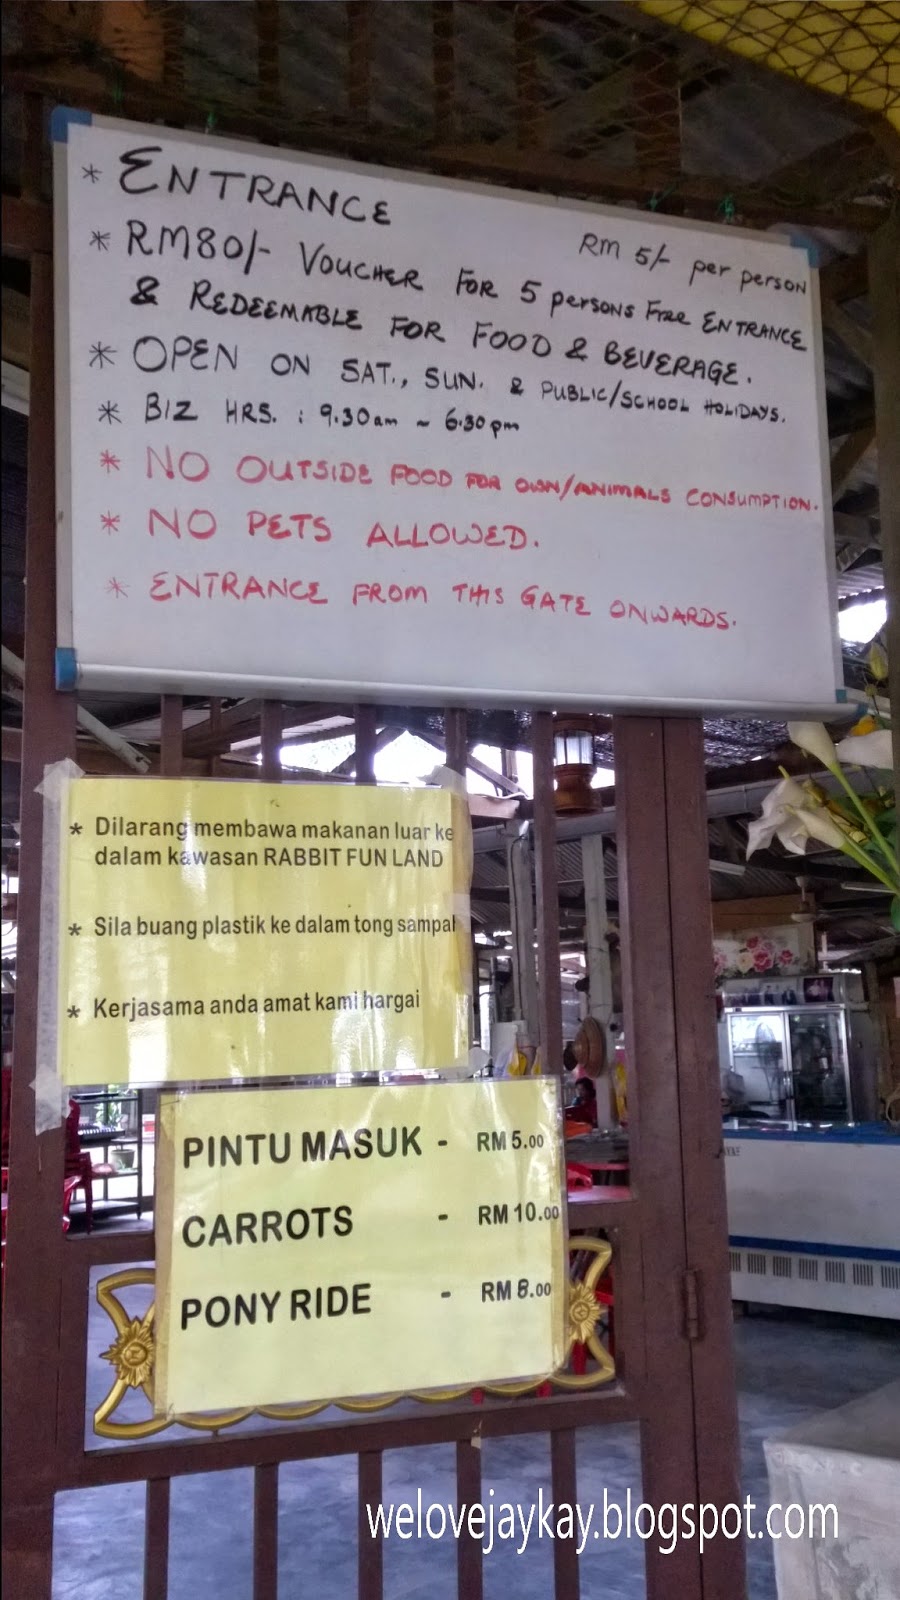 * ENTRANCE RM 5/- per person
* RM80/- VOUCHER FOR 5 persons Free ENTRANCE
& REDEEMABLE FOR FOOD & BEVERAGE.
* OPEN ON SAT., SUN. & PUBLIC/SCHOOL HOLIDAYS.
* BIZ HRS. : 9.30am ~ 6.30pm
* NO OUTSIDE FOOD FOR OWN/ANIMALS CONSUMPTION.
* NO PETS ALLOWED.
* ENTRANCE FROM THIS GATE ONWARDS.
* Dilarang membawa makanan luar ke
dalam kawasan RABBIT FUN LAND
* Sila buang plastik ke dalam tong sampah
* Kerjasama anda amat kami hargai
PINTU MASUK - RM 5.00
CARROTS - RM 10.00
PONY RIDE - RM 8.00
welovejaykay.blogspot.com